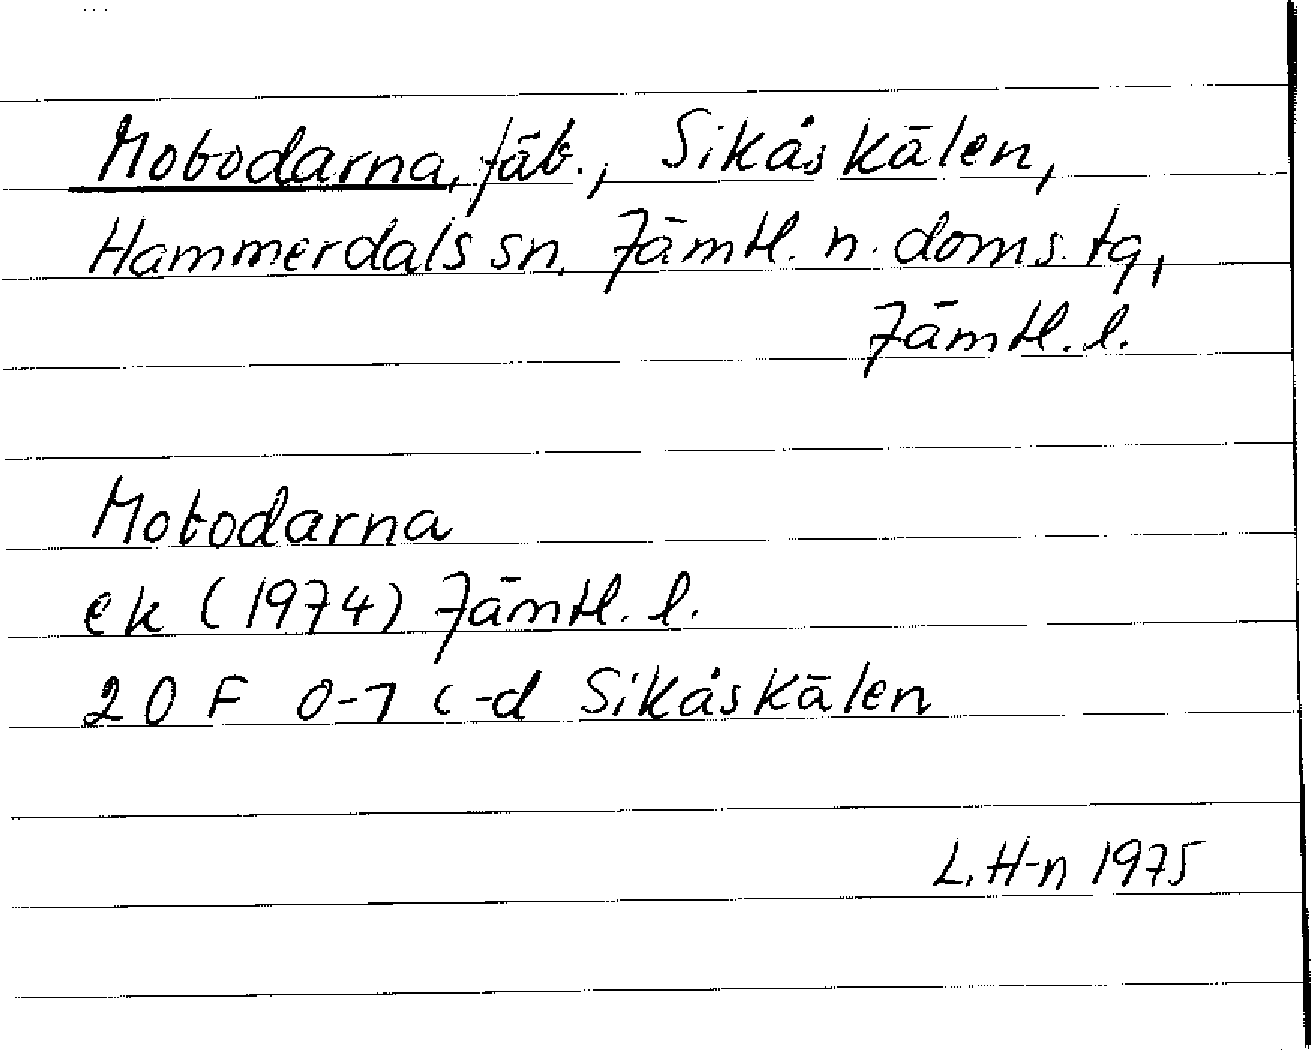 Mobodarna, fäb., Sikåskälen,
Hammerdals sn. Jämtl. n. doms. tg,
Jämtl. l.
Mobodarna
ek (1974) Jämtl. l.
20 F 0-1 c-d Sikåskälen
L. H-n 1975